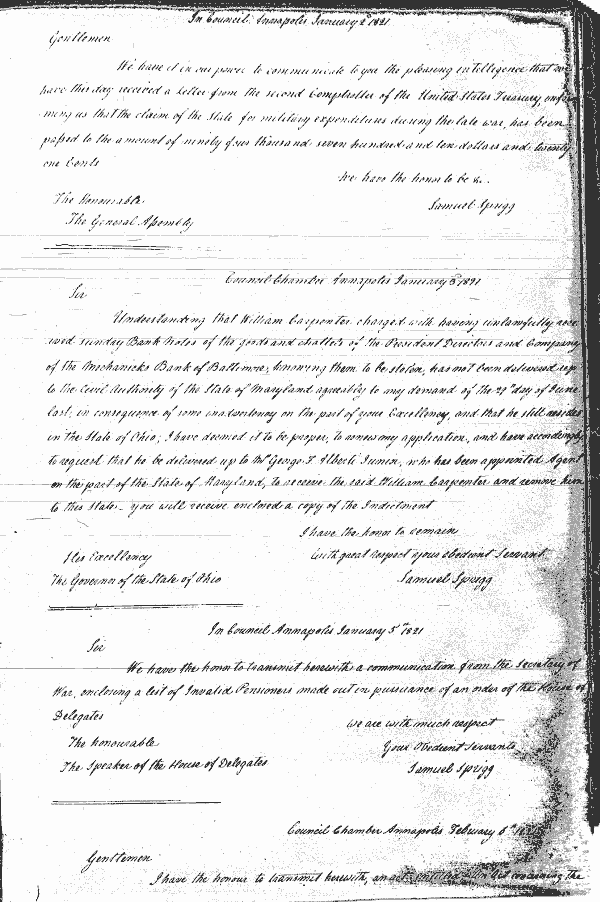 In Council, Annapolis January 2d 1821
Gentlemen
We have it in our power to communicate to you the pleasing intelligence that we
have this day received a Letter from the second Comptroller of the United States Treasury, infor
ming us that the claim of the State for military expenditures during the late war, has been
passed to the amount of ninety four thousand seven hundred and ten dollars and twenty
one Cents
We have the honor to be &c.
The Honourable
Samuel Sprigg
The General Assembly
Council Chamber Annapolis January 3d 1821
Sir
Understanding that William Carpenter charged with having unlawfully rece
ived sundry Bank Notes of the goods and chattels of the President Directors and Company
of the Mechanicks Bank of Baltimore, knowing them to be stolen, has not been delivered up
to the Civil Authority of the State of Maryland agreeably to my demand of the 29th day of June
last, in consequence of some inadvertency on the part of your Excellency, and that he still resides
in the State of Ohio; I have deemed it to be proper, to renew my application, and have accordingly
to request that he be delivered up to Mr George F. Alberti Junior, who has been appointed Agent
on the part of the State of Maryland, to receive the said William Carpenter and remove him
to this State - you will receive enclosed a copy of the Indictment
I have the honor to remain
His Excellency
with great respect your obedient Servant
The Governor of the State of Ohio
Samuel Sprigg
In Council Annapolis January 5th 1821
Sir
We have the honor to transmit herewith a communication from the Secretary of
War, enclosing a list of Invalid Pensioners made out in pursuance of an order of the House of
Delegates
We are with much respect
The honourable
Your Obedient Servants
The Speaker of the House of Delegates
Samuel Sprigg
Council Chamber Annapolis February 6th
Gentlemen
I have the honour to transmit herewith, an act entitled an Act concerning the